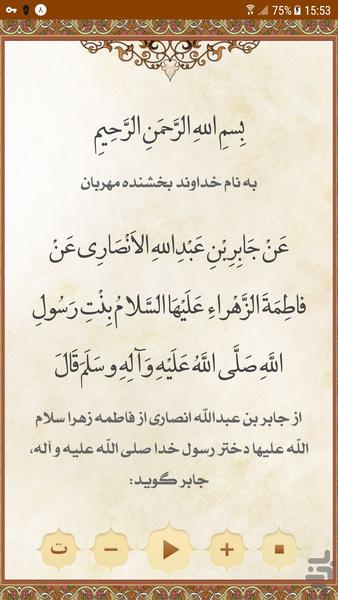 ۸ 75% 15:53
بِسمِ اللهِ الرَّحمَنِ الرَّحِيمِ
به نام خداوند بخشنده مهربان
عَنْ جَابِرِبْنِ عَبْدِاللهِ الاَنْصَارِی عَنْ
فاطِمَةَ الزَّهْراءِ عَلَیْهَا السَّلامُ بِنْتِ رَسُولِ
اللَّهِ صَلَّی اللَّهُ عَلَیْهِ وَآلِهِ وَسَلَّمَ قَالَ
از جابر بن عبدالله انصاری از فاطمه زهرا سلام
الله علیها دختر رسول خدا صلی الله علیه و آله،
جابر گوید:
ت
بازار